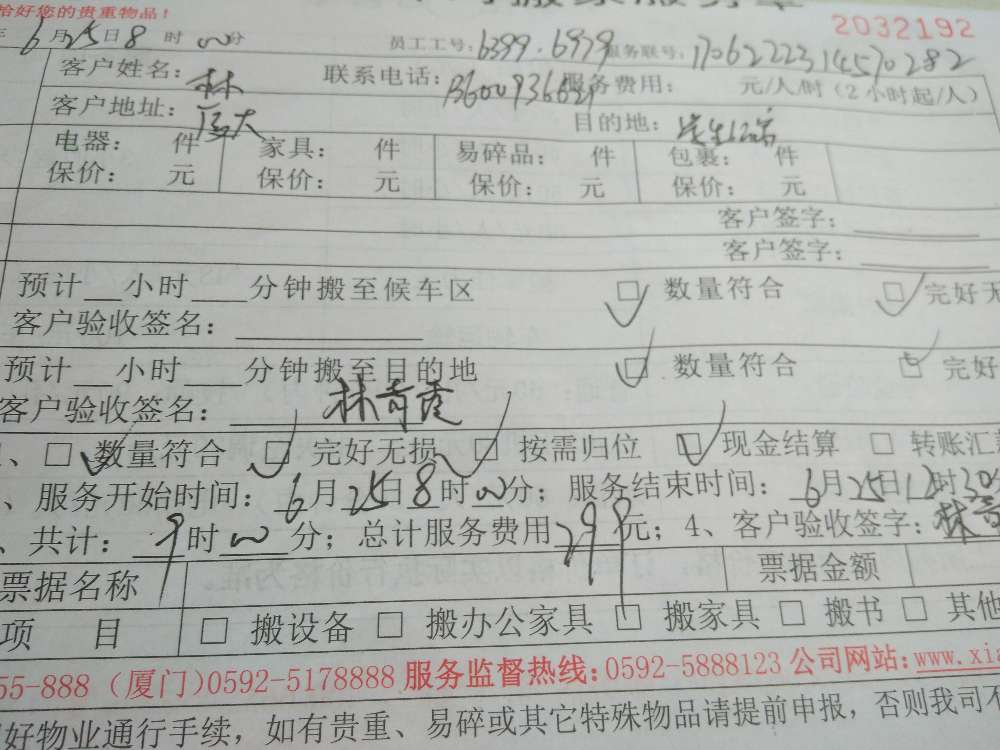 拾好您的贵重物品!
2032192
6月25日8时00分 员工工号:6399.6979 服务联号:1706222314570282
客户姓名:林 联系电话: 服务费用: 元/人/时(2小时起/人)
客户地址:厦大 目的地:
电器: 件 家具: 件 易碎品: 件 包裹: 件
保价: 元 保价: 元 保价: 元 保价: 元
客户签字:
客户签字:
预计__小时___分钟搬至候车区 □ 数量符合 □ 完好无
客户验收签名:
预计__小时___分钟搬至目的地 □ 数量符合 □ 完好
客户验收签名:林奇霞
、□ 数量符合 □ 完好无损 □ 按需归位 □ 现金结算 □ 转账汇
、服务开始时间:6月25日8时00分;服务结束时间:6月25日12时30
、共计:9时00分;总计服务费用299元;4、客户验收签字:林奇
票据名称 票据金额
项 目 □ 搬设备 □ 搬办公家具 □ 搬家具 □ 搬书 □ 其他
55-888 (厦门)0592-5178888 服务监督热线:0592-5888123 公司网站:www.xia
好物业通行手续,如有贵重、易碎或其它特殊物品请提前申报,否则我司不